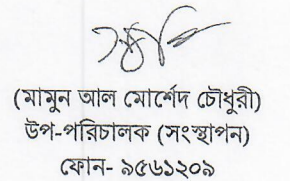 (মামুন আল মোর্শেদ চৌধুরী)
উপ-পরিচালক (সংস্থাপন)
ফোন- ৯৫৬১২০৯